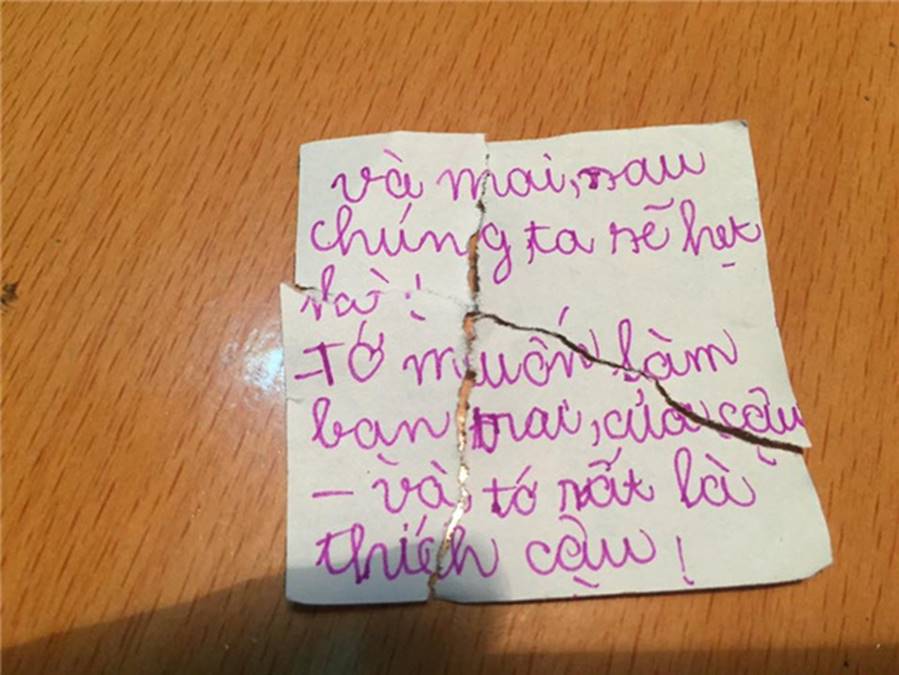 và mai, sau
chúng, ta sẽ hẹt
!
-Tớ muốn làm
ban trai, của cậu
- và, tớ rất là
thích cậu !